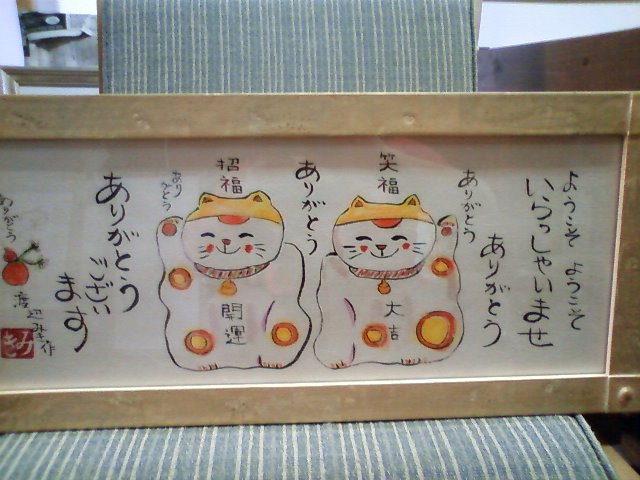 ようこそ ようこそ
いらっしゃいませ
ありがとう
ありがとう
笑福
大吉
ありがとう
招福
開運
ありがとう
ありがとう
ござい
ます
ありがとう
渡辺
作